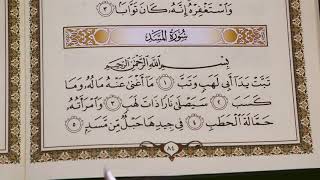 وَاسْتَغْفِرْهُ إِنَّهُ كَانَ تَوَّابًا ٣
سُورَةُ الْمَسَدِ
بِسْمِ اللَّهِ الرَّحْمَٰنِ الرَّحِيمِ
تَبَّتْ يَدَا أَبِي لَهَبٍ وَتَبَّ ١ مَا أَغْنَىٰ عَنْهُ مَالُهُ وَمَا
كَسَبَ ٢ سَيَصْلَىٰ نَارًا ذَاتَ لَهَبٍ ٣ وَامْرَأَتُهُ
حَمَّالَةَ الْحَطَبِ ٤ فِي جِيدِهَا حَبْلٌ مِّن مَّسَدٍ ٥
٨٤